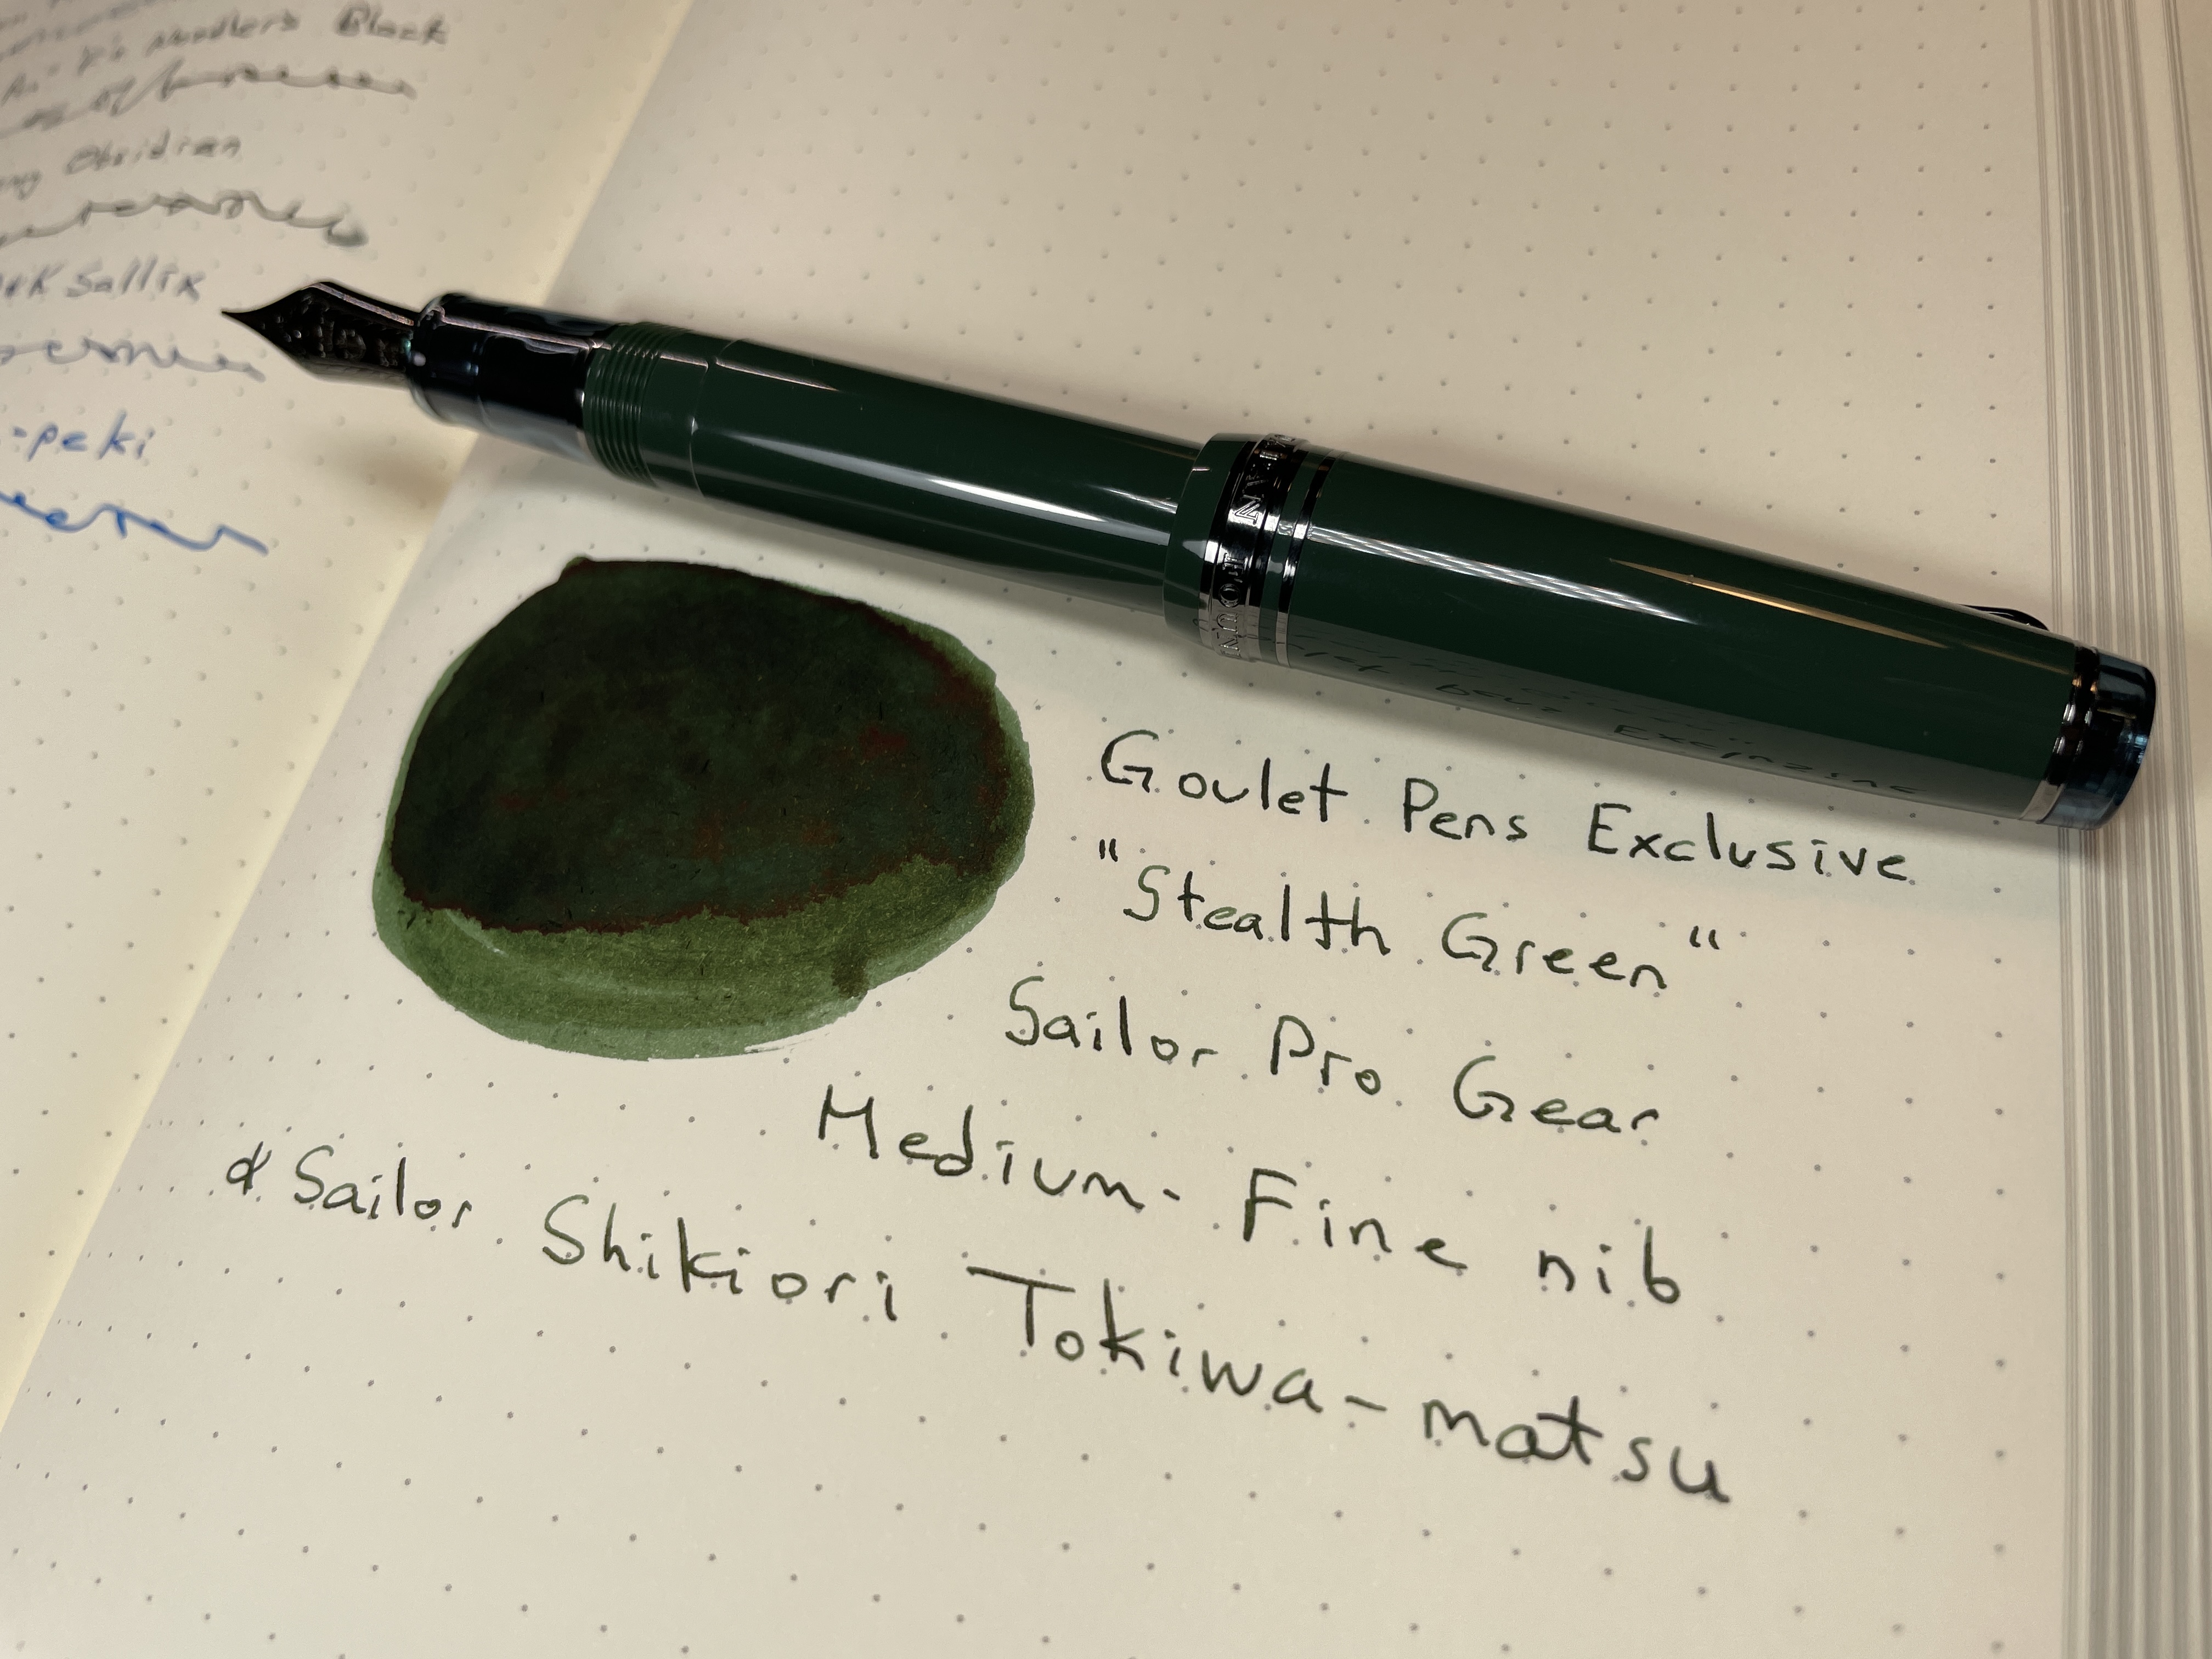 Noodler's Black
Obsidian
Sallix
-peki
Goulet Pens Exclusive
"Stealth Green"
Sailor Pro Gear
Medium-Fine nib
& Sailor Shikiori Tokiwa-matsu